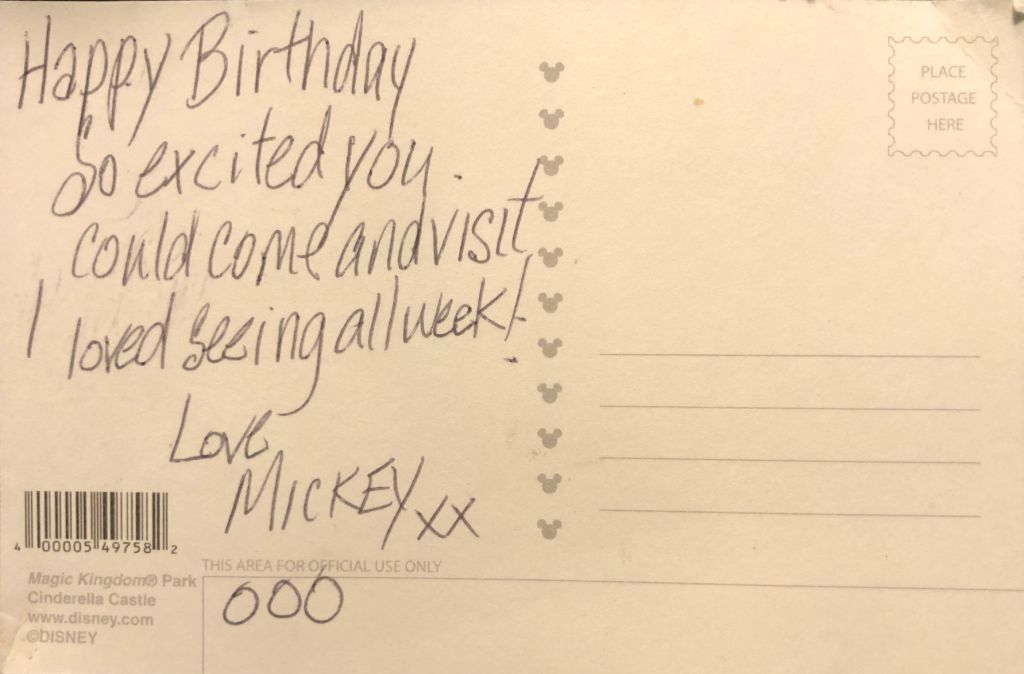 Happy Birthday
So excited you
could come and visit
I loved seeing all week!
Love
MICKEY xx
000
PLACE
POSTAGE
HERE
4 00005 49758 2
Magic Kingdom® Park
Cinderella Castle
www.disney.com
©DISNEY
THIS AREA FOR OFFICIAL USE ONLY